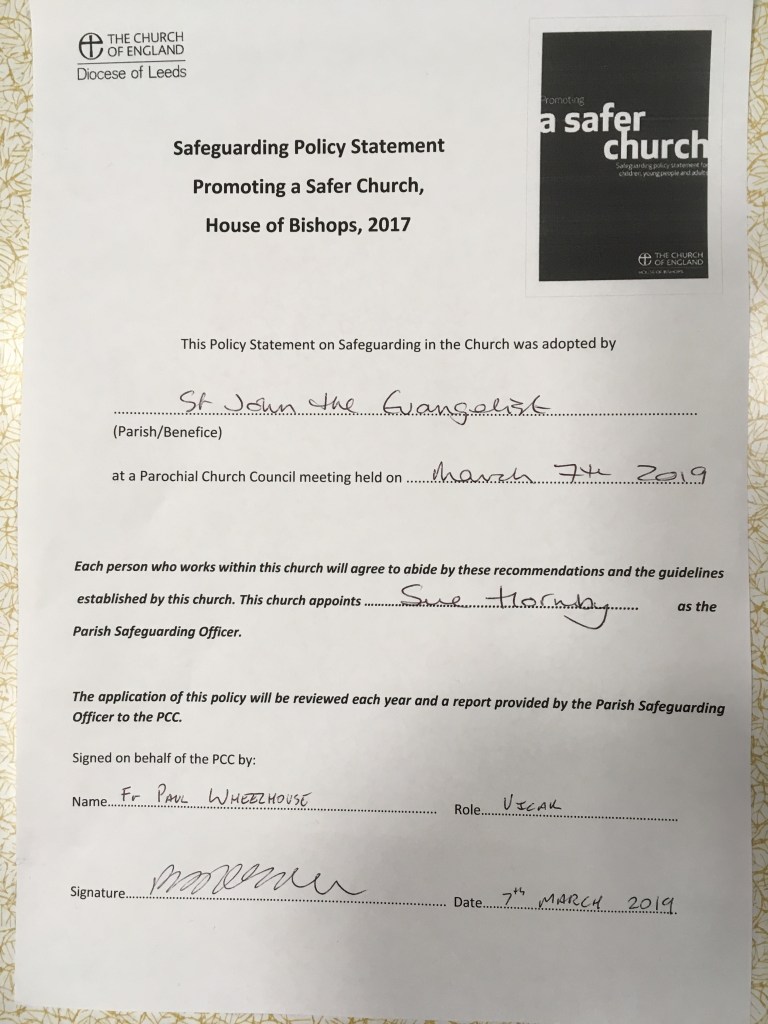 THE CHURCH
OF ENGLAND
Diocese of Leeds
Promoting
a safer
church
Safeguarding policy statement for
children, young people and adults
THE CHURCH
OF ENGLAND
HOUSE OF BISHOPS
Safeguarding Policy Statement
Promoting a Safer Church,
House of Bishops, 2017
This Policy Statement on Safeguarding in the Church was adopted by
St John the Evangelist
(Parish/Benefice)
at a Parochial Church Council meeting held on ...... March 7th 2019
Each person who works within this church will agree to abide by these recommendations and the guidelines
established by this church. This church appoints ........ Sue Hornby ........ as the
Parish Safeguarding Officer.
The application of this policy will be reviewed each year and a report provided by the Parish Safeguarding
Officer to the PCC.
Signed on behalf of the PCC by:
Name... Fr PAUL WHEELHOUSE ........ Role.... VICAR
Signature........ Date.... 7th MARCH 2019